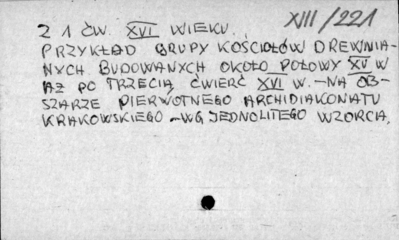 XIII/221
Z 1 ĆW. XVI WIEKU.
PRZYKŁAD GRUPY KOŚCIOŁÓW DREWNIA-
NYCH BUDOWANYCH OKOŁO POŁOWY XV W
AŻ PO TRZECIĄ ĆWIERĆ XVI W. – NA OB-
SZARZE PIERWOTNEGO ARCHIDIAKONATU
KRAKOWSKIEGO – WG JEDNOLITEGO WZORCA.